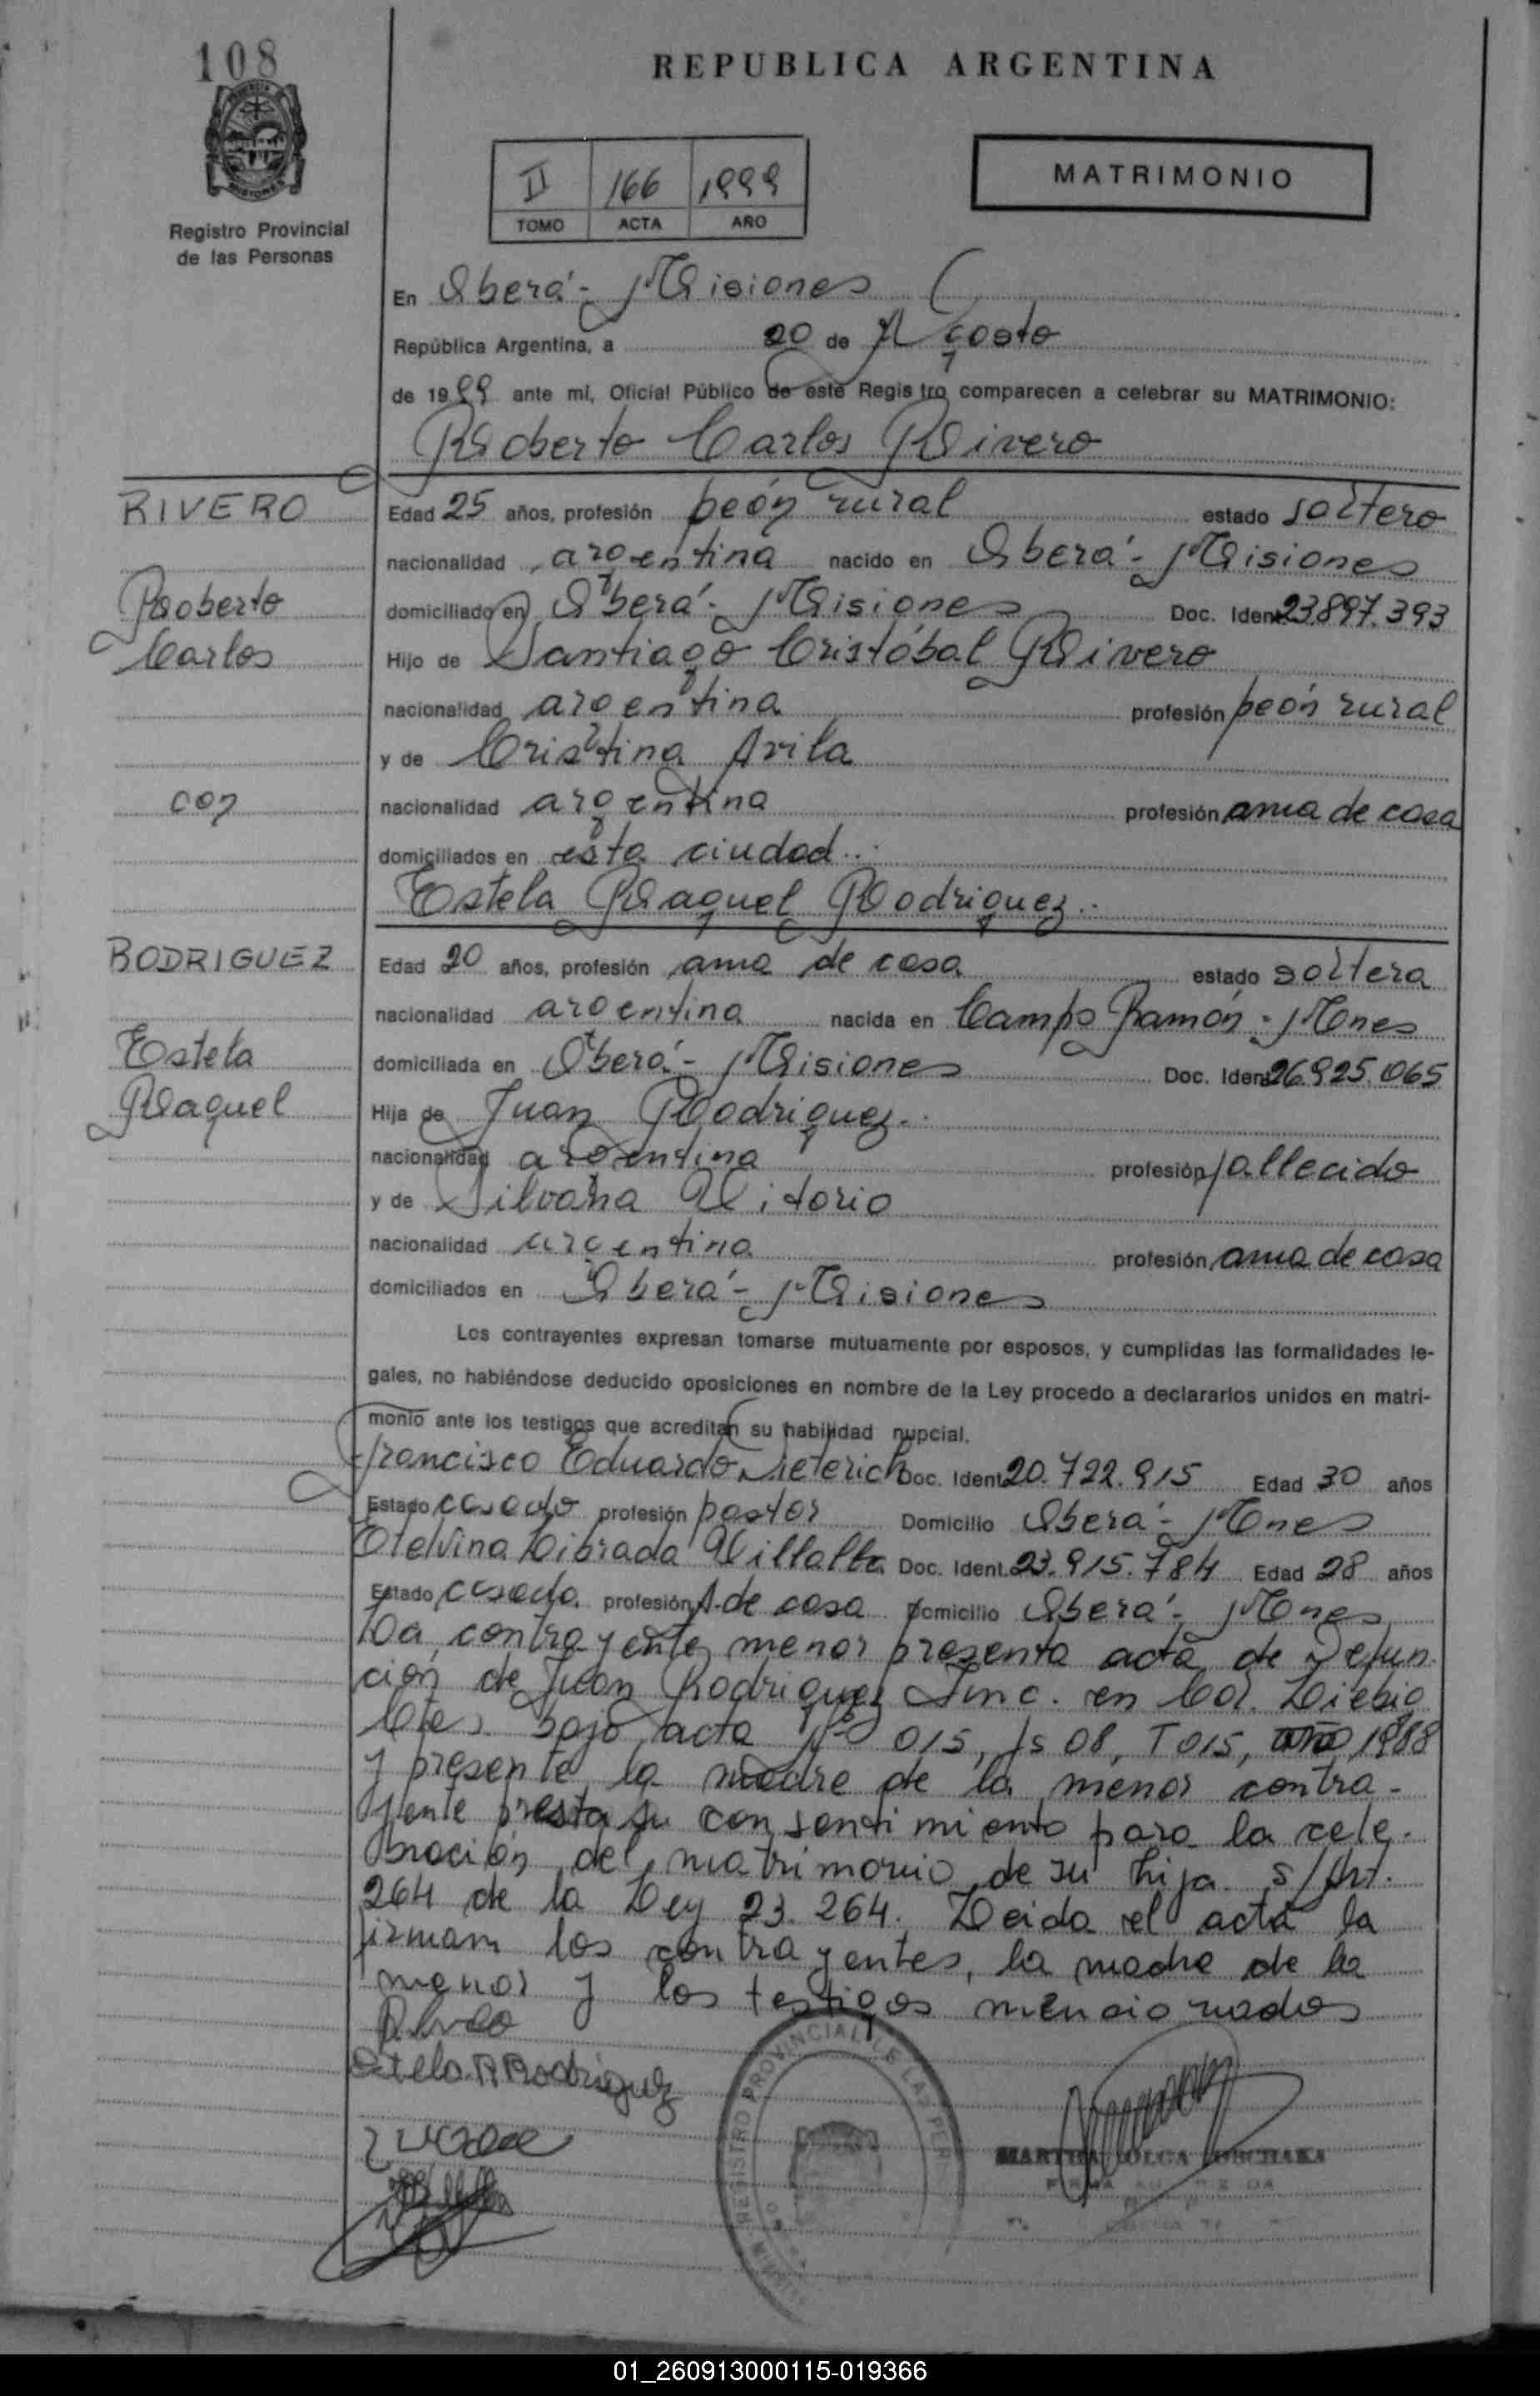 108
REPUBLICA ARGENTINA
II 166 1999
TOMO ACTA AÑO
MATRIMONIO
Registro Provincial
de las Personas
En Oberá - Misiones
República Argentina, a 20 de Agosto
de 1999 ante mi, Oficial Público de este Registro comparecen a celebrar su MATRIMONIO:
Roberto Carlos Rivero
RIVERO
Edad 25 años, profesión peón rural estado soltero
nacionalidad argentina nacido en Oberá - Misiones
Roberto
domiciliado en Oberá - Misiones Doc. Ident. 23.897.393
Carlos
Hijo de Santiago Cristóbal Rivero
nacionalidad argentina profesión peón rural
y de Cristina Avila
con
nacionalidad argentina profesión ama de casa
domiciliados en esta ciudad.
Estela Raquel Rodriguez.
RODRIGUEZ
Edad 20 años, profesión ama de casa estado soltera
nacionalidad argentina nacida en Campo Ramón - Mnes
Estela
domiciliada en Oberá - Misiones Doc. Ident. 26.925.065
Raquel
Hija de Juan Rodriguez.
nacionalidad argentina profesión fallecido
y de Silvana Vitorio
nacionalidad argentina profesión ama de casa
domiciliados en Oberá - Misiones
Los contrayentes expresan tomarse mutuamente por esposos, y cumplidas las formalidades le-
gales, no habiéndose deducido oposiciones en nombre de la Ley procedo a declararlos unidos en matri-
monio ante los testigos que acreditan su habilidad nupcial.
Francisco Eduardo Dieterich Doc. Ident. 20.722.915 Edad 30 años
Estado casado profesión pastor Domicilio Oberá - Mnes
Otelvina Librada Villalba Doc. Ident. 23.915.784 Edad 28 años
Estado casada profesión A. de casa Domicilio Oberá - Mnes
La contrayente menor presenta acta de Defun
ción de Juan Rodriguez Insc. en Col. Liebig
Ctes. bajo acta Nº 015, fs 08, T 015, año 1988
y presente la madre de la menor contra-
yente presta su consentimiento para la cele-
bración del matrimonio de su hija s/Art.
264 de la Ley 23.264. Leida el acta la
firman los contrayentes, la madre de la
menor y los testigos mencionados
Estela R Rodriguez
REGISTRO PROVINCIAL DE LAS PER
MARTHA OLGA
01_260913000115-019366